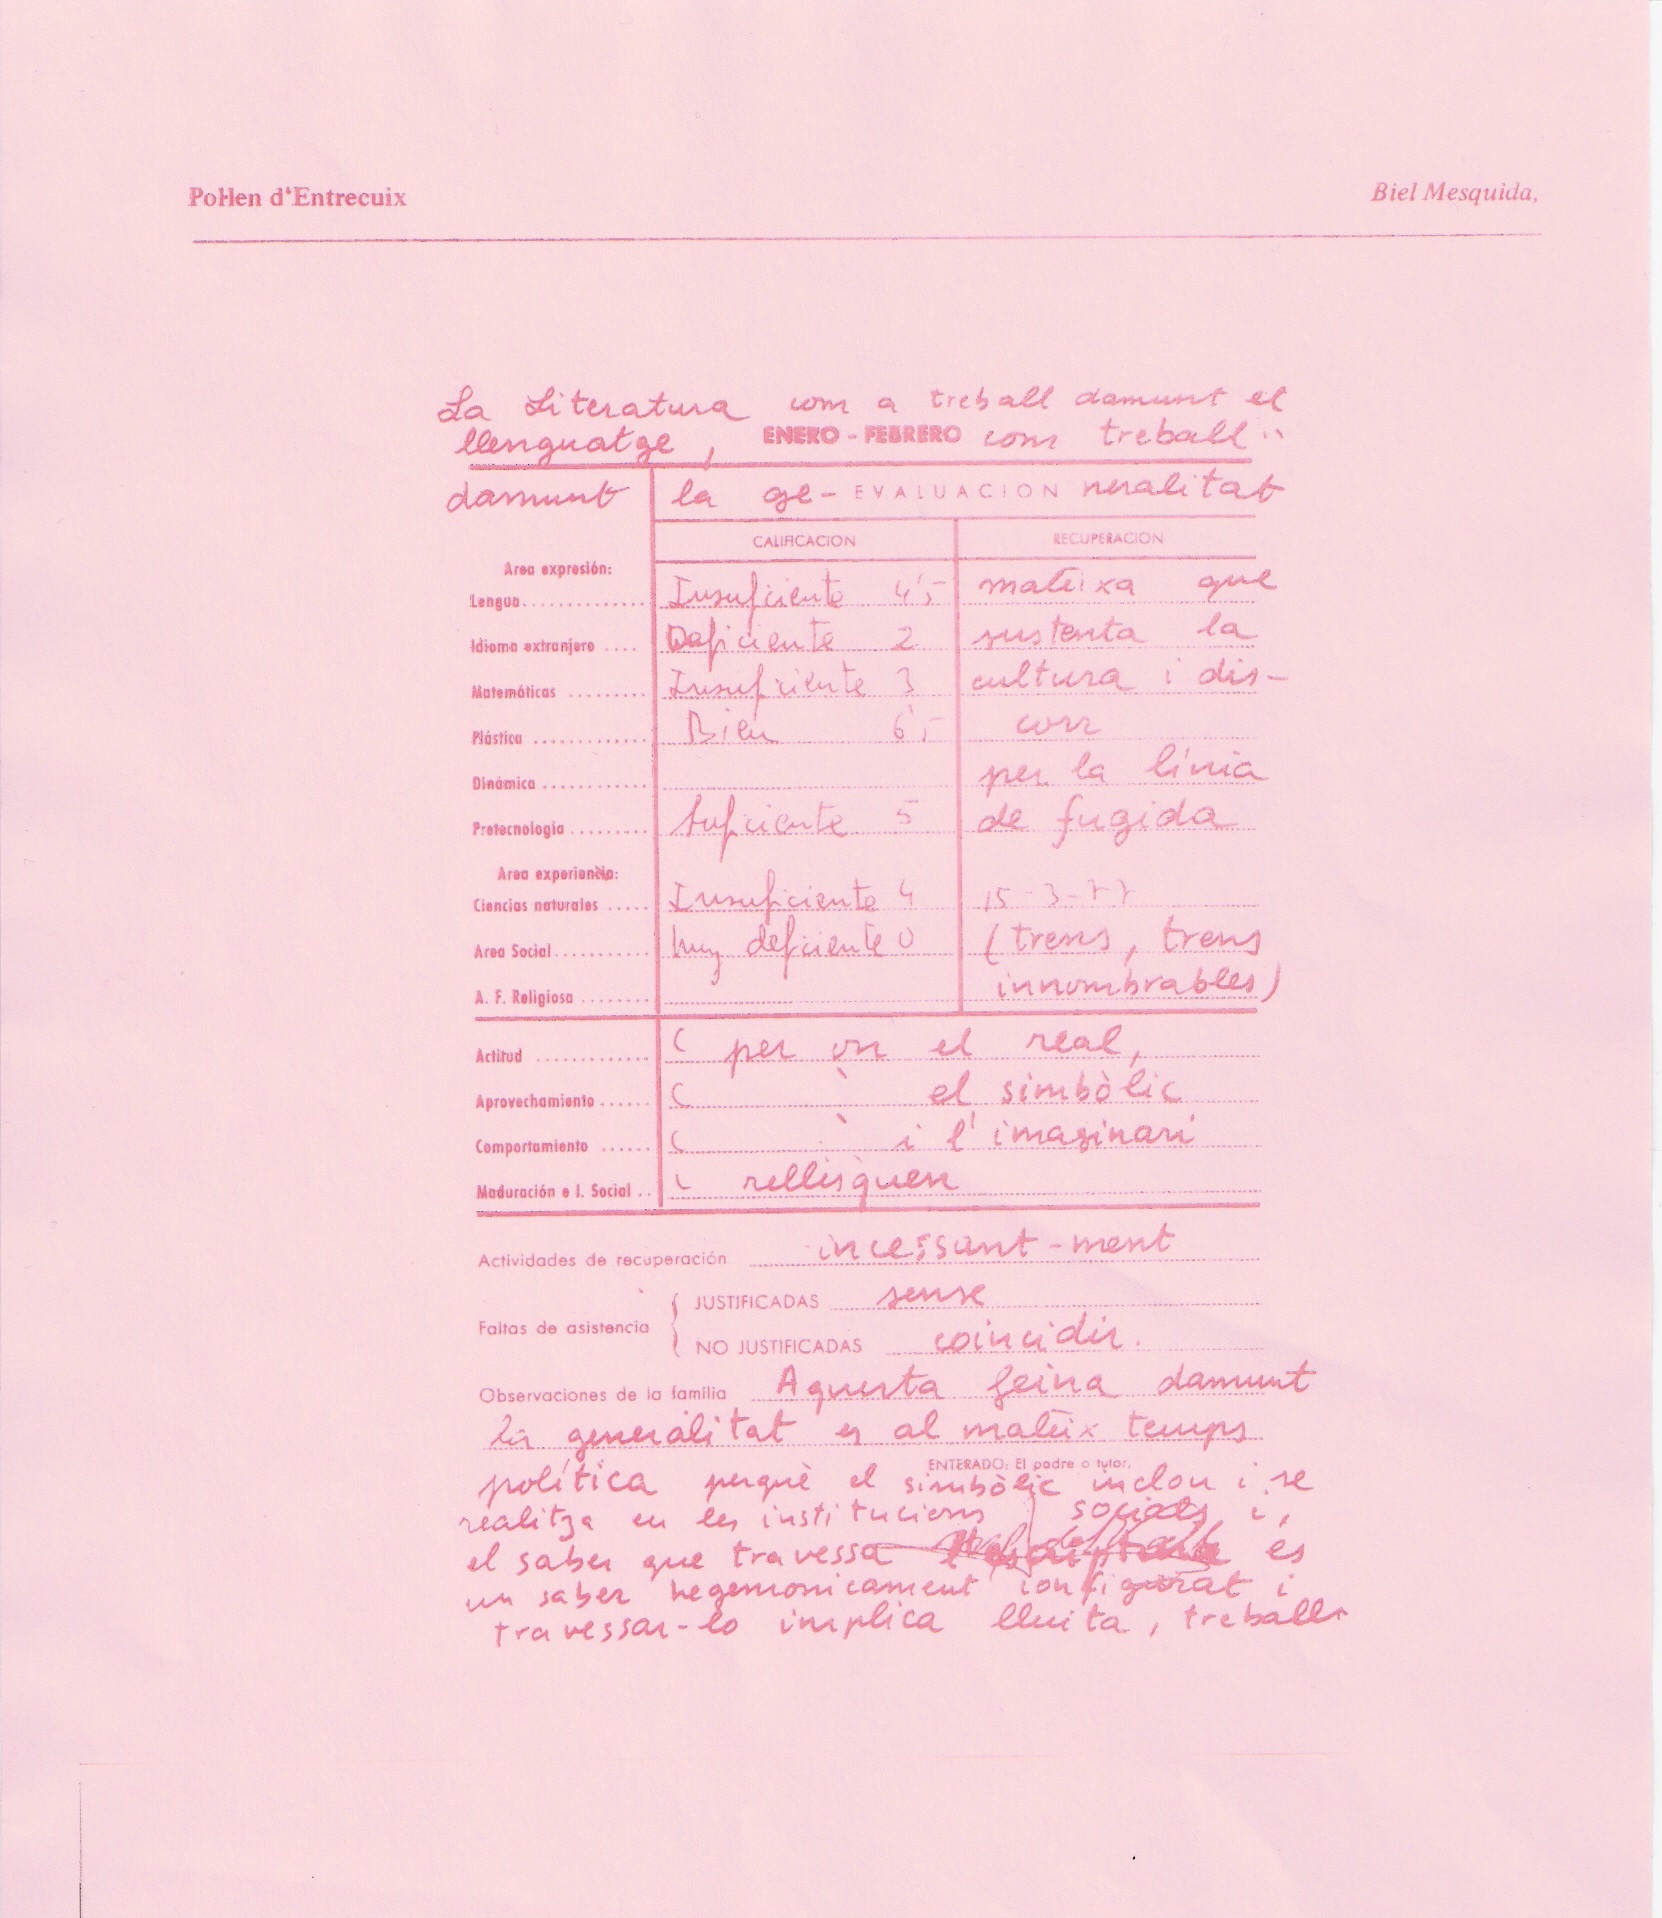 Pol·len d'Entrecuix Biel Mesquida,
La Literatura com a treball damunt el
llenguatge, ENERO - FEBRERO com treball
damunt la ge- EVALUACION neralitat
CALIFICACION RECUPERACION
Area expresión:
Lengua............. Insuficiente 4'- mateixa que
Idioma extranjero .... Deficiente 2 sustenta la
Matemáticas ......... Insuficiente 3 cultura i dis-
Plástica ............. Bien 6'- corr
Dinámica ............ per la línia
Pretecnología ......... Suficiente 5 de fugida
Area experiencia:
Ciencias naturales ..... Insuficiente 4 15-3-77
Area Social........... Muy deficiente 0 (trens, trens
A. F. Religiosa ........ innombrables)
Actitud ............. ( per on el real,
Aprovechamiento ...... ( el simbòlic
Comportamiento ...... ( i l'imaginari
Maduración e I. Social .. ( rellisquen
Actividades de recuperación incessant-ment
Faltas de asistencia { JUSTIFICADAS sense
NO JUSTIFICADAS coincidir.
Observaciones de la familia Aquesta feina damunt
la generalitat es al mateix temps
ENTERADO: El padre o tutor,
política perquè el simbòlic inclou i se
realitza en les institucions socials i,
el saber que travessa es
un saber hegemonicament configurat i
travessar-lo implica lluita, treball